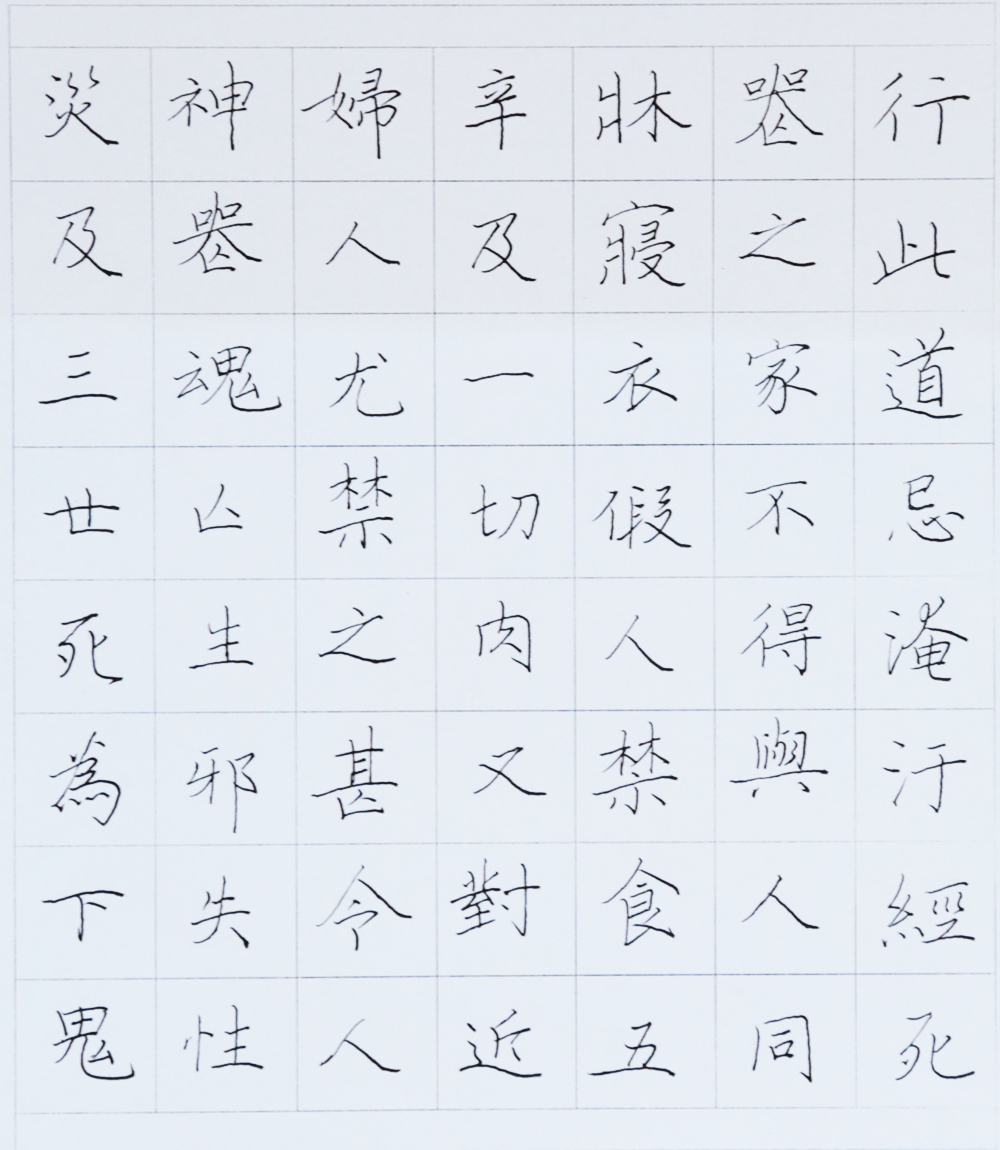 行此道忌淹汙經死
喪之家不得與人同
牀寢衣假人禁食五
辛及一切肉又對近
婦人尤禁之甚令人
神喪魂亡生邪失性
災及三世死為下鬼